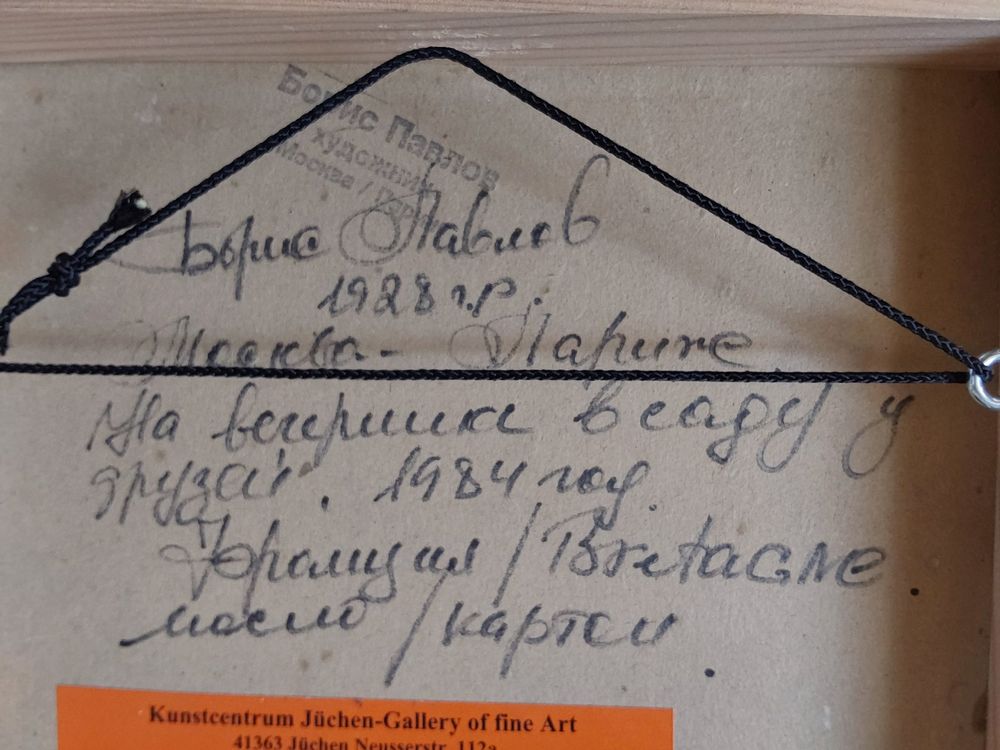 Борис Павлов
художник
Москва /
Борис Павлов
1928 г.р.
Москва - Париж
На вечеринке в саду у
друзей. 1984 год.
Франция / Bretagne.
масло / картон.
Kunstcentrum Jüchen-Gallery of fine Art
41363 Jüchen Neusserstr. 112a